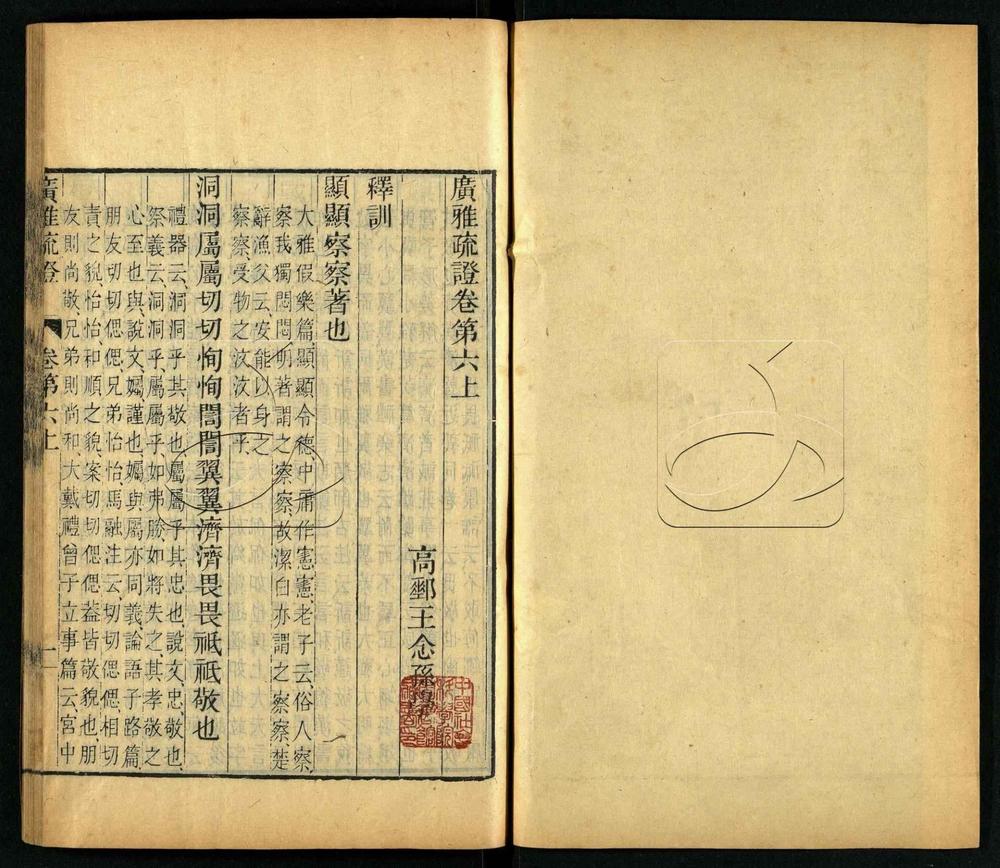 廣雅疏證卷第六上
高郵王念孫學
釋訓
顯顯察察著也
大雅假樂篇顯顯令德中庸作憲憲老子云俗人察
察我獨悶悶明著謂之察察故潔白亦謂之察察楚
辭漁父云安能以身之
察察受物之汶汶者乎
洞洞屬屬切切恂恂誾誾翼翼濟濟畏畏祗祗敬也
禮器云洞洞乎其敬也屬屬乎其忠也說文忠敬也
祭義云洞洞乎屬屬乎如弗勝如將失之其孝敬之
心至也與說文孎謹也孎與屬亦同義論語子路篇
朋友切切偲偲兄弟怡怡馬融注云切切偲偲相切
責之貌怡怡和順之貌案切切偲偲葢皆敬貌也朋
友則尚敬兄弟則尚和大戴禮曾子立事篇云宮中
廣雅疏證 卷第六上 一